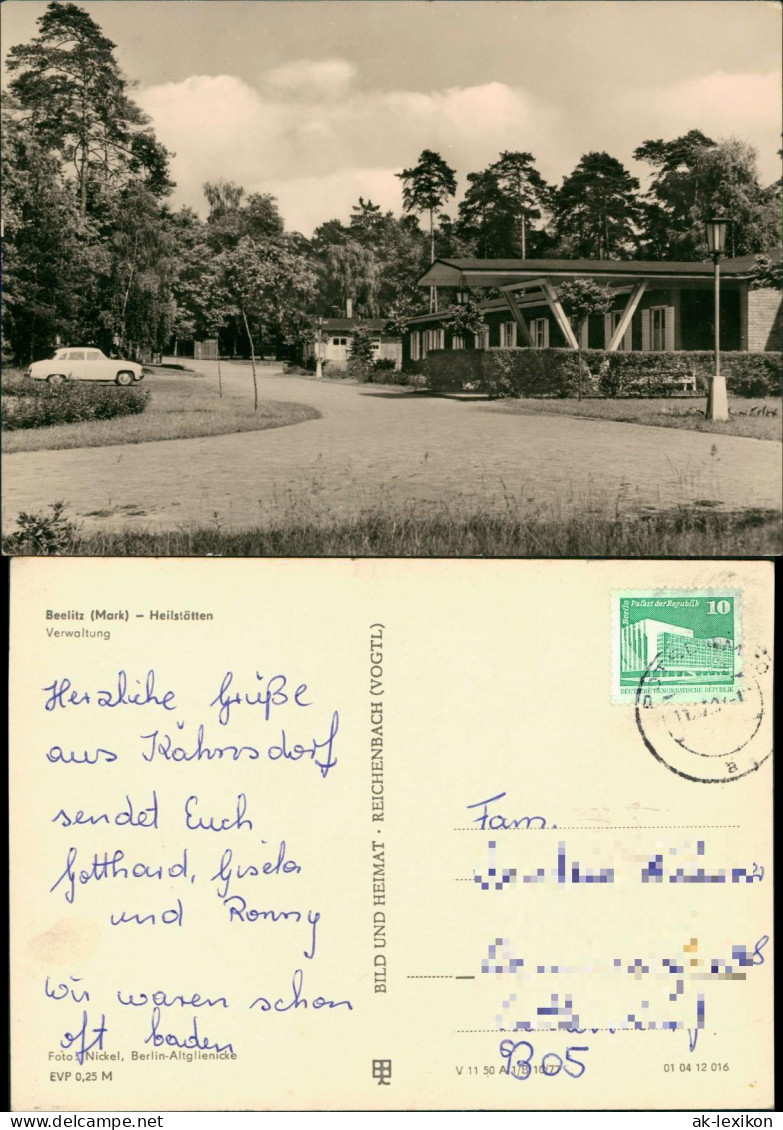 Beelitz (Mark) – Heilstätten
Verwaltung
Herzliche Grüße
aus Kähnsdorf
sendet Euch
Gotthard, Gisela
und Ronny
wir waren schon
oft baden
Foto: Nickel, Berlin-Altglienicke
EVP 0,25 M
BILD UND HEIMAT · REICHENBACH (VOGTL)
Berlin Palast der Republik 10
DEUTSCHE DEMOKRATISCHE REPUBLIK
a
Fam.
9305
V 11 50 A 1/B 10/77
01 04 12 016
ak-lexikon